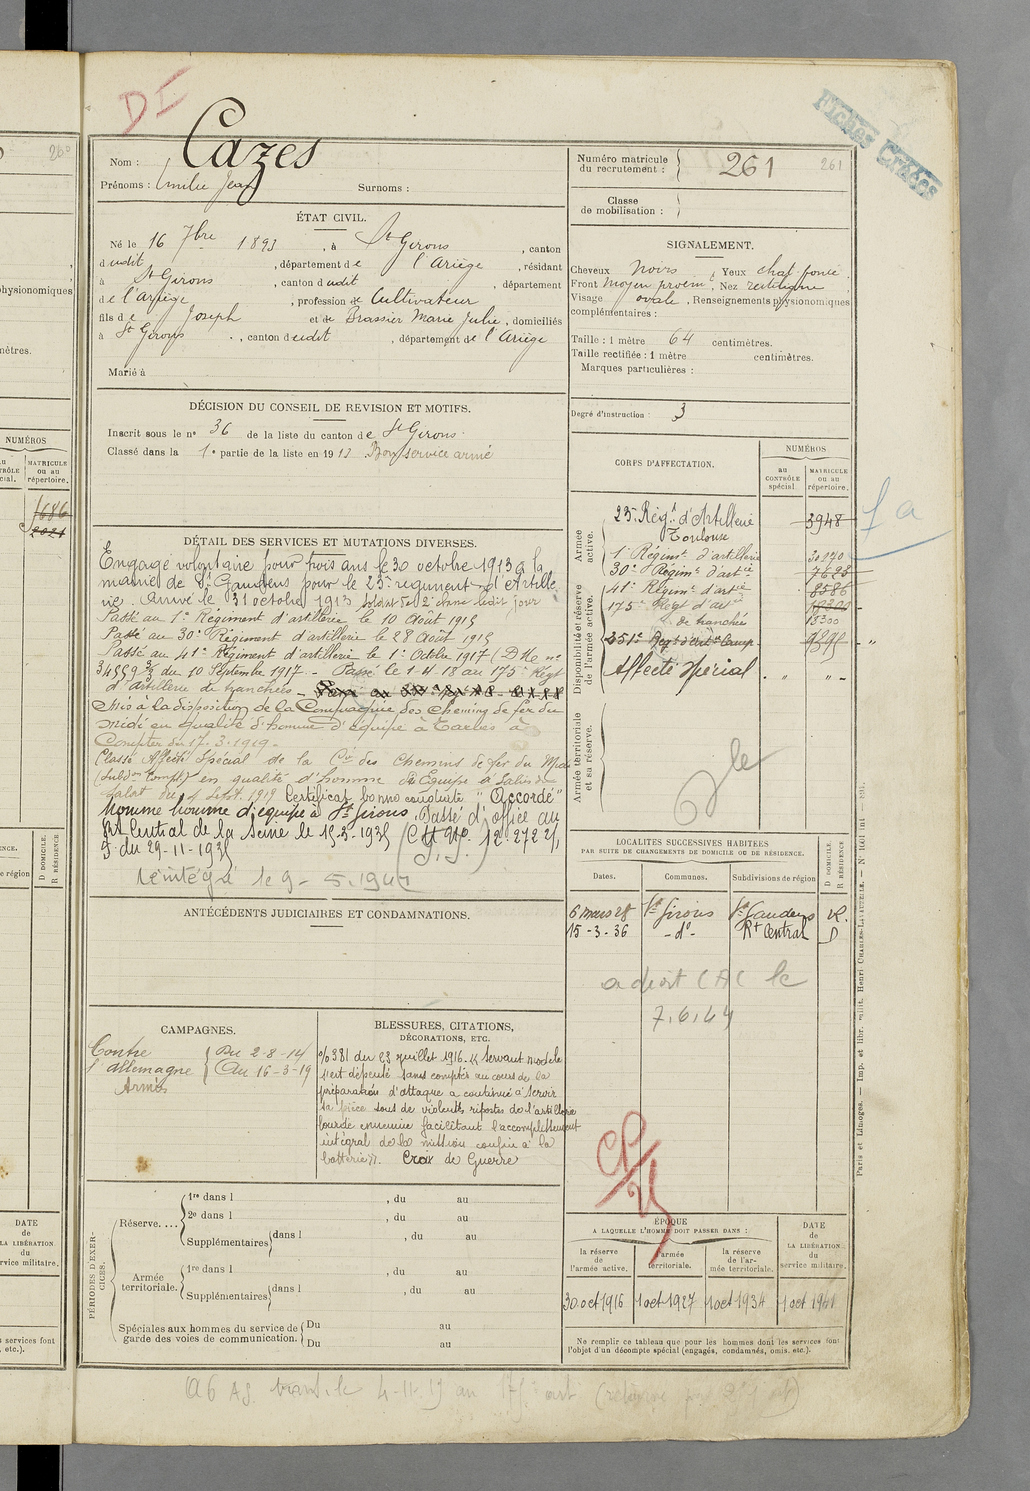 DI
Fiches Créées
Nom : Cazes
Prénoms : Emilie Jean Surnoms :
Numéro matricule du recrutement : 261 261
Classe de mobilisation :
ÉTAT CIVIL.
Né le 16 7bre 1893, à St Girons, canton
dudit, département de l'Ariège, résidant
à St Girons, canton dudit, département
de l'Ariège, profession de Cultivateur
fils de Joseph et de Brassier Marie Julie, domiciliés
à St Girons, canton dudit, département de l'Ariège
Marié à
SIGNALEMENT.
Cheveux noirs, Yeux chat foncé
Front moyen proém, Nez rectiligne
Visage ovale, Renseignements physionomiques
complémentaires :
Taille : 1 mètre 64 centimètres.
Taille rectifiée : 1 mètre centimètres.
Marques particulières :
Degré d'instruction : 3
DÉCISION DU CONSEIL DE REVISION ET MOTIFS.
Inscrit sous le no 36 de la liste du canton de St Girons
Classé dans la 1e partie de la liste en 1913 Bon service armé
DÉTAIL DES SERVICES ET MUTATIONS DIVERSES.
Engagé volontaire pour trois ans le 30 octobre 1913 à la
mairie de St Gaudens pour le 23e régiment d'Artille
rie. Arrivé le 31 octobre 1913 soldat de 2e classe ledit jour
Passé au 1er Régiment d'artillerie le 10 Août 1915
Passé au 30e Régiment d'artillerie le 28 Août 1915
Passé au 41e Régiment d'artillerie le 1er Octobre 1917 (DMle no
34559 3/3 du 10 Septembre 1917 - Passé le 1-4-18 au 175e Régt
d'artillerie de tranchées -
Mis à la disposition de la Compagnie des Chemins de fer du
Midi en qualité d'homme d'équipe à Tarbes à
Compter du 17-3-1919.
Classé Affecté Spécial de la Cie des Chemins de fer du Midi
(Subd on Compl) en qualité d'homme d'Equipe à Salies du
Salat du 4 Sept. 1919 Certificat bonne conduite "Accordé"
Nommé homme d'équipe à St Girons. Passé d'office au
Rt Central de la Seine le 15-3-1935 (C M No 12.272 2/,
5 du 29-11-1935
réintégré le 9-5-1940
CORPS D'AFFECTATION.
NUMÉROS
au CONTRÔLE spécial.
MATRICULE ou au répertoire.
Armée active.
23e Régt d'Artillerie 3948
Toulouse
Disponibilité et réserve de l'armée active.
1er Régiment d'artillerie
30e Régim. d'artie 7628
41e Régim. d'artie 8586
175e Régt d'artie
de tranchée 13300
351e
Affecté Spécial " " "
fa
Armée territoriale et sa réserve.
LOCALITÉS SUCCESSIVES HABITÉES
PAR SUITE DE CHANGEMENTS DE DOMICILE OU DE RÉSIDENCE.
Dates. Communes. Subdivisions de région D DOMICILE. R RÉSIDENCE
6 mars 28 St Girons St Gaudens R.
15-3-36 -do- Rt Central D
a droit CAC le
7.6.44
ANTÉCÉDENTS JUDICIAIRES ET CONDAMNATIONS.
CAMPAGNES.
Contre l'allemagne
Du 2-8-14
Au 16-3-19
Armées
BLESSURES, CITATIONS,
DÉCORATIONS, ETC.
o/o 381 du 23 juillet 1916. « Servant modèle
s'est dépensé sans compter au cours de la
préparation d'attaque a continué à servir
sa pièce sous de violents ripostes de l'artillerie
lourde ennemie facilitant l'accomplissement
intégral de la mission confiée à la
batterie ». Croix de Guerre
PÉRIODES D'EXERCICES.
Réserve....
1re dans l , du au
2e dans l , du au
Supplémentaires dans l , du au
Armée territoriale.
1re dans l , du au
Supplémentaires dans l , du au
Spéciales aux hommes du service de garde des voies de communication.
Du au
Du au
ÉPOQUE
A LAQUELLE L'HOMME DOIT PASSER DANS :
DATE de LA LIBÉRATION du service militaire.
la réserve de l'armée active. l'armée territoriale. la réserve de l'armée territoriale.
30 oct 1916 1 oct 1927 1 oct 1934 1 oct 1941
Ne remplir ce tableau que pour les hommes dont les services font
l'objet d'un décompte spécial (engagés, condamnés, omis, etc.).
Paris et Limoges. — Imp. et libr. milit. Henri CHARLES-LAVAUZELLE.
physionomiques
mètres.
NUMÉROS
MATRICULE ou au répertoire.
1686
2021
D DOMICILE.
R RÉSIDENCE
DATE de LA LIBÉRATION du service militaire.
services font
, etc.).